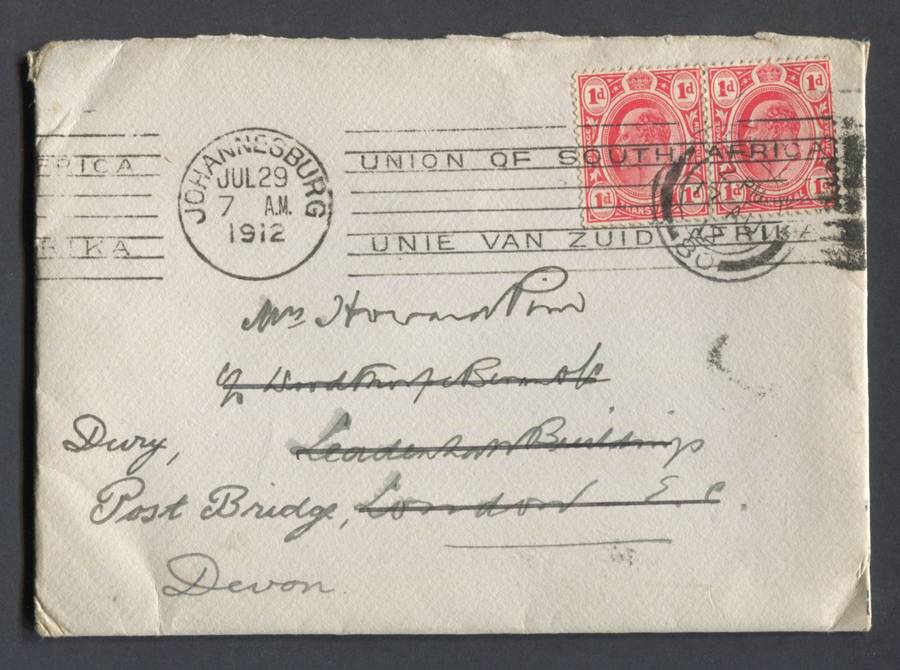 ERICA
RIKA
JOHANNESBURG
JUL 29
7 A.M.
1912
UNION OF SOUTH AFRICA
UNIE VAN ZUID AFRIKA
1d 1d
1d 1d
1d 1d
1d
TRANS
Mrs Howard Pim
c/o Woodthorpe Bevan & Co
Leadenhall Buildings
London E.C.
Dury,
Post Bridge,
Devon